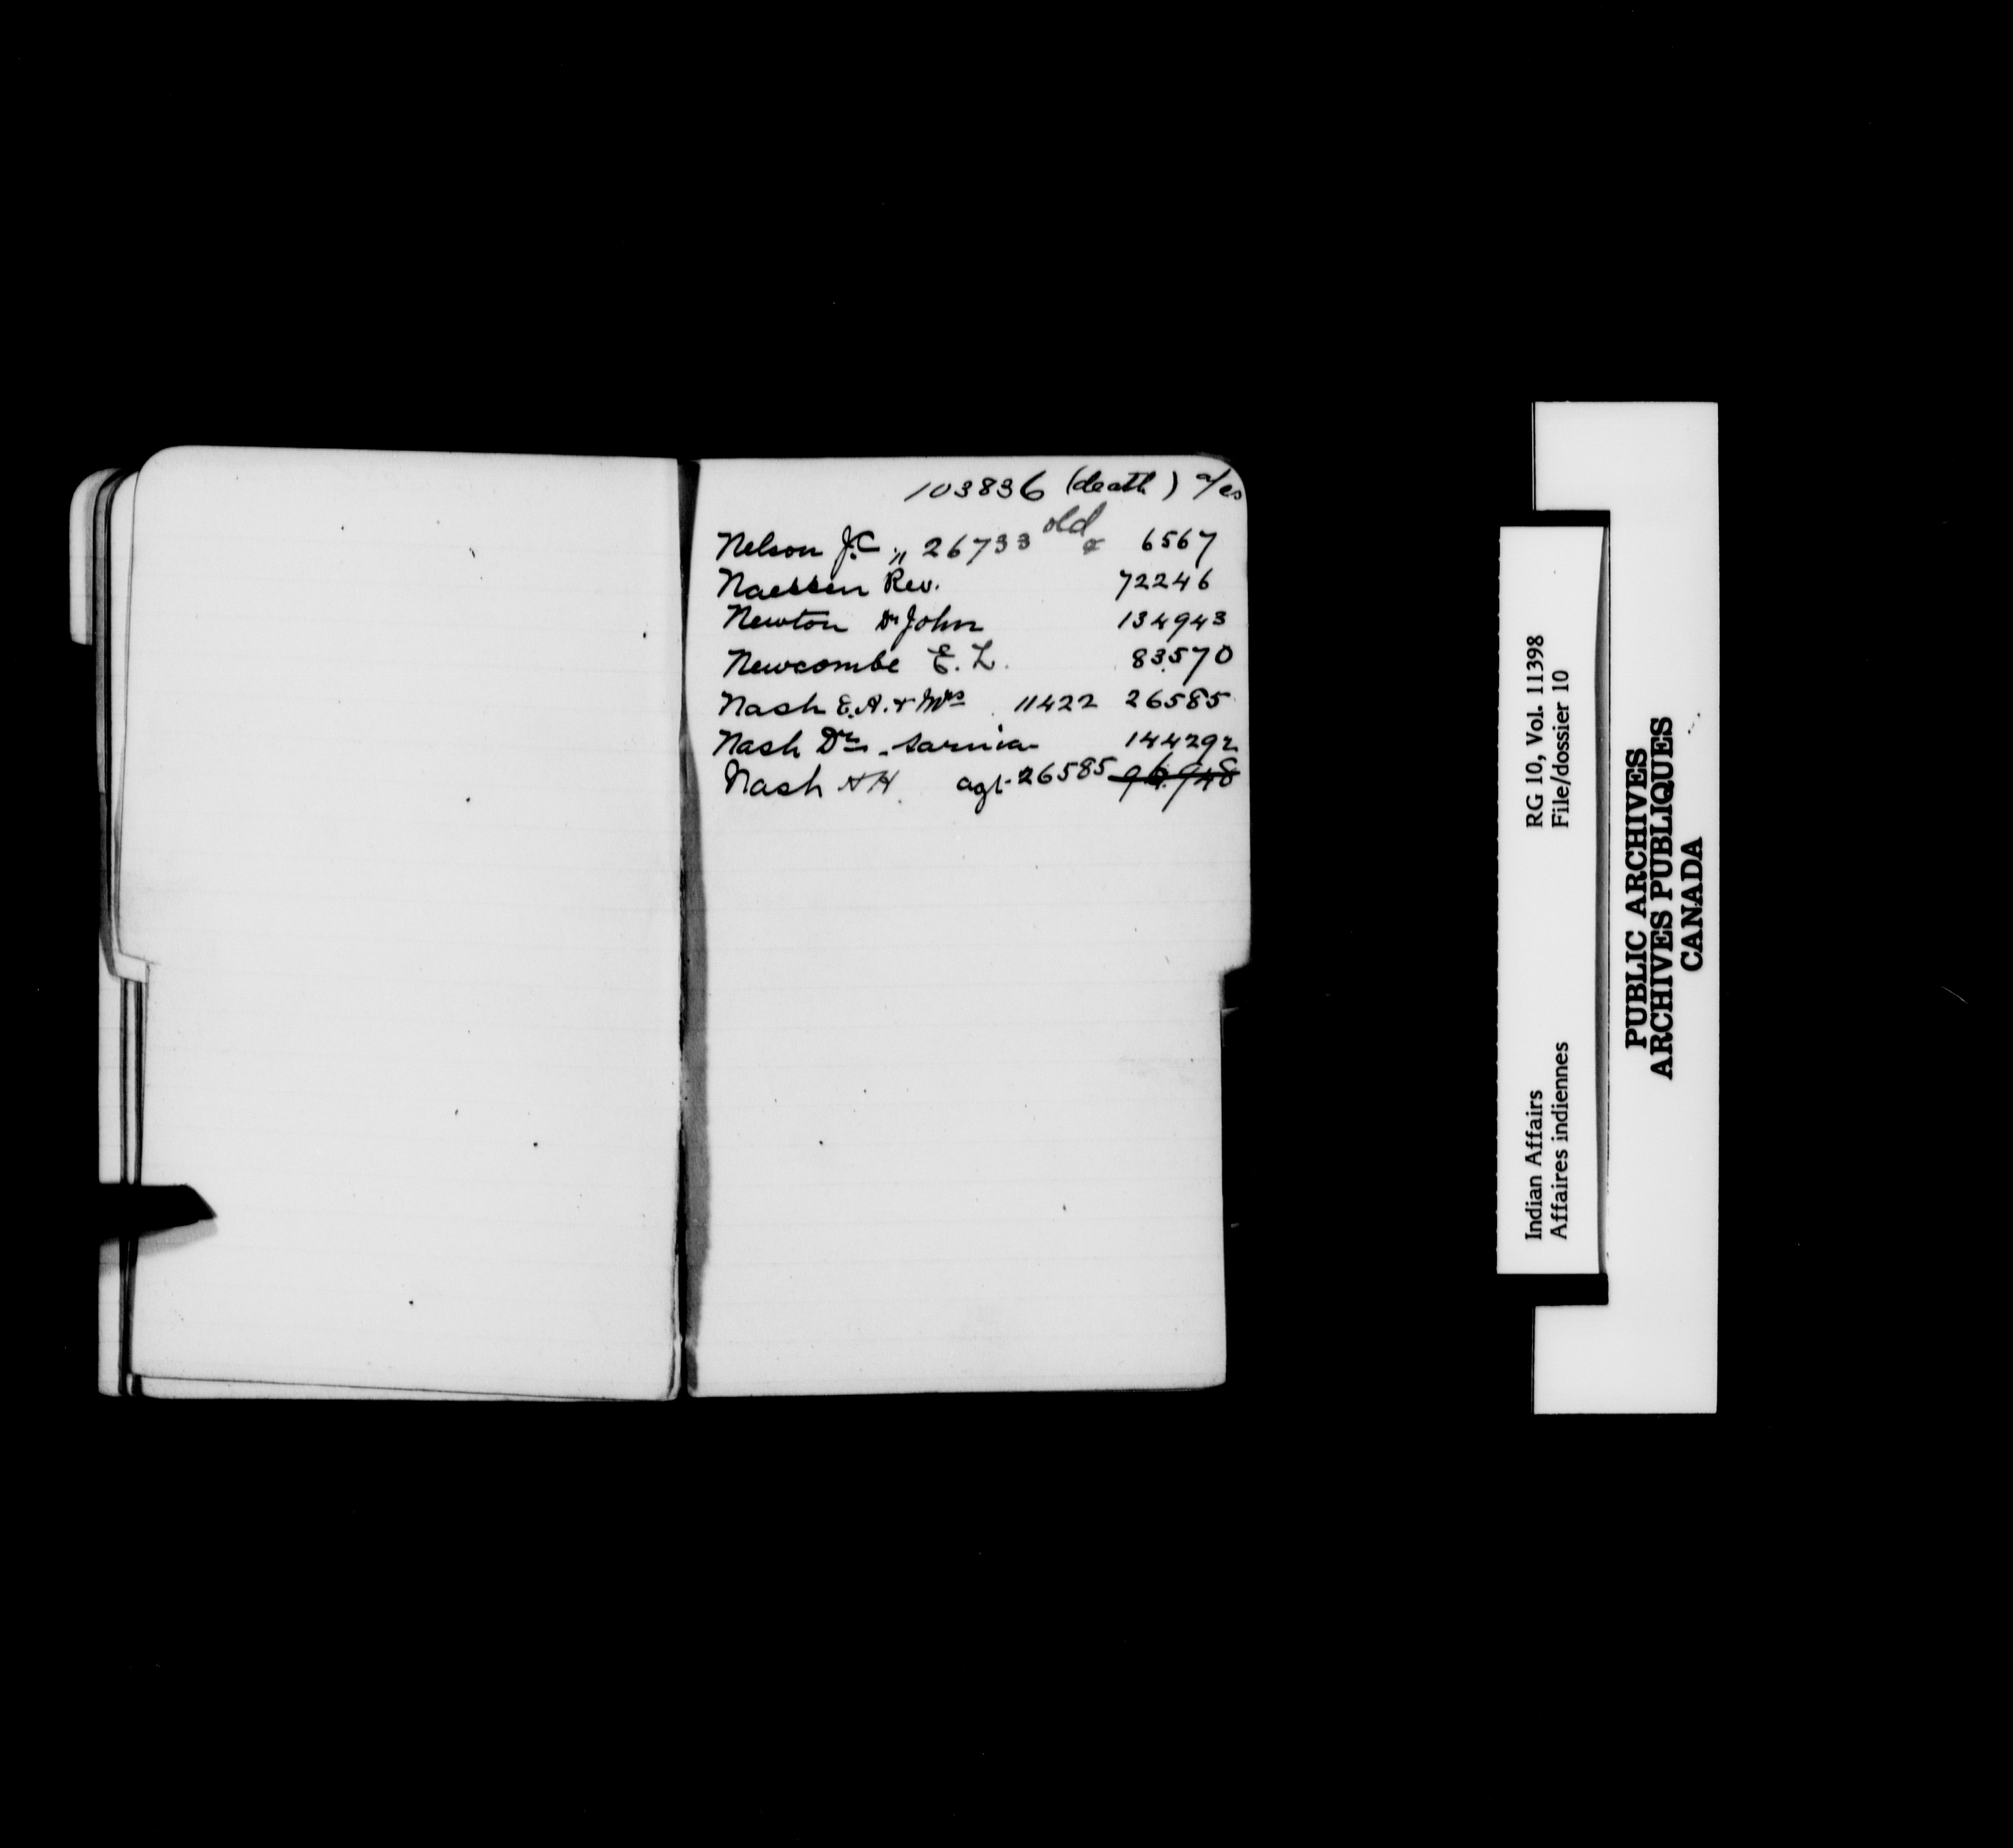 103836 (death) a/cs
Nelson J.C. „ 26733 old & 6567
Naessen Rev. 72246
Newton Dr John 134943
Newcombe E. L. 83570
Nash E.A. & Mrs 11422 26585
Nash Dr. - Sarnia 144292
Nash HH agt. 26585 96948
RG 10, Vol. 11398
File/dossier 10
Indian Affairs
Affaires indiennes
PUBLIC ARCHIVES
ARCHIVES PUBLIQUES
CANADA